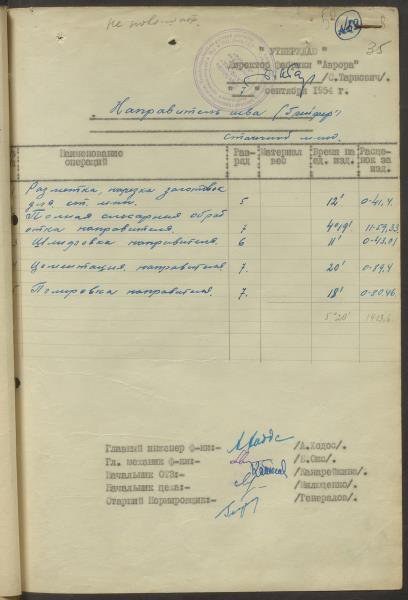 не новошвст
№59
35
" УТВЕРЖДАЮ "
Директор Фабрики "Аврора"
/С.Таркович/.
" 7 " сентября 1954 г.
Направитель шва (Бейдер)
стачной маш.
Наименование операций
Раз- ряд
Материал вес
Время на ед. изд.
Расце- нок за изд.
Разметка, нарезка заготовок
для ст. маш. 5 12' 0-41,4.
Полная слесарная обраб
отка направителя. 7 4°19' 11-59,33
Шлифовка направителя. 6 11' 0-43,01
Цементация направителя 7. 20' 0-89,4
Полировка направителя. 7. 18' 0-80,46
5°20'
Главный инженер ф-ки:- /А.Кодос/.
Гл. механик ф-ки:-
Начальник ОТЗ:- /Канарейкина/.
Начальник цеха:- /Милюценко/.
Старший Нормировщик:- /Генералов/.